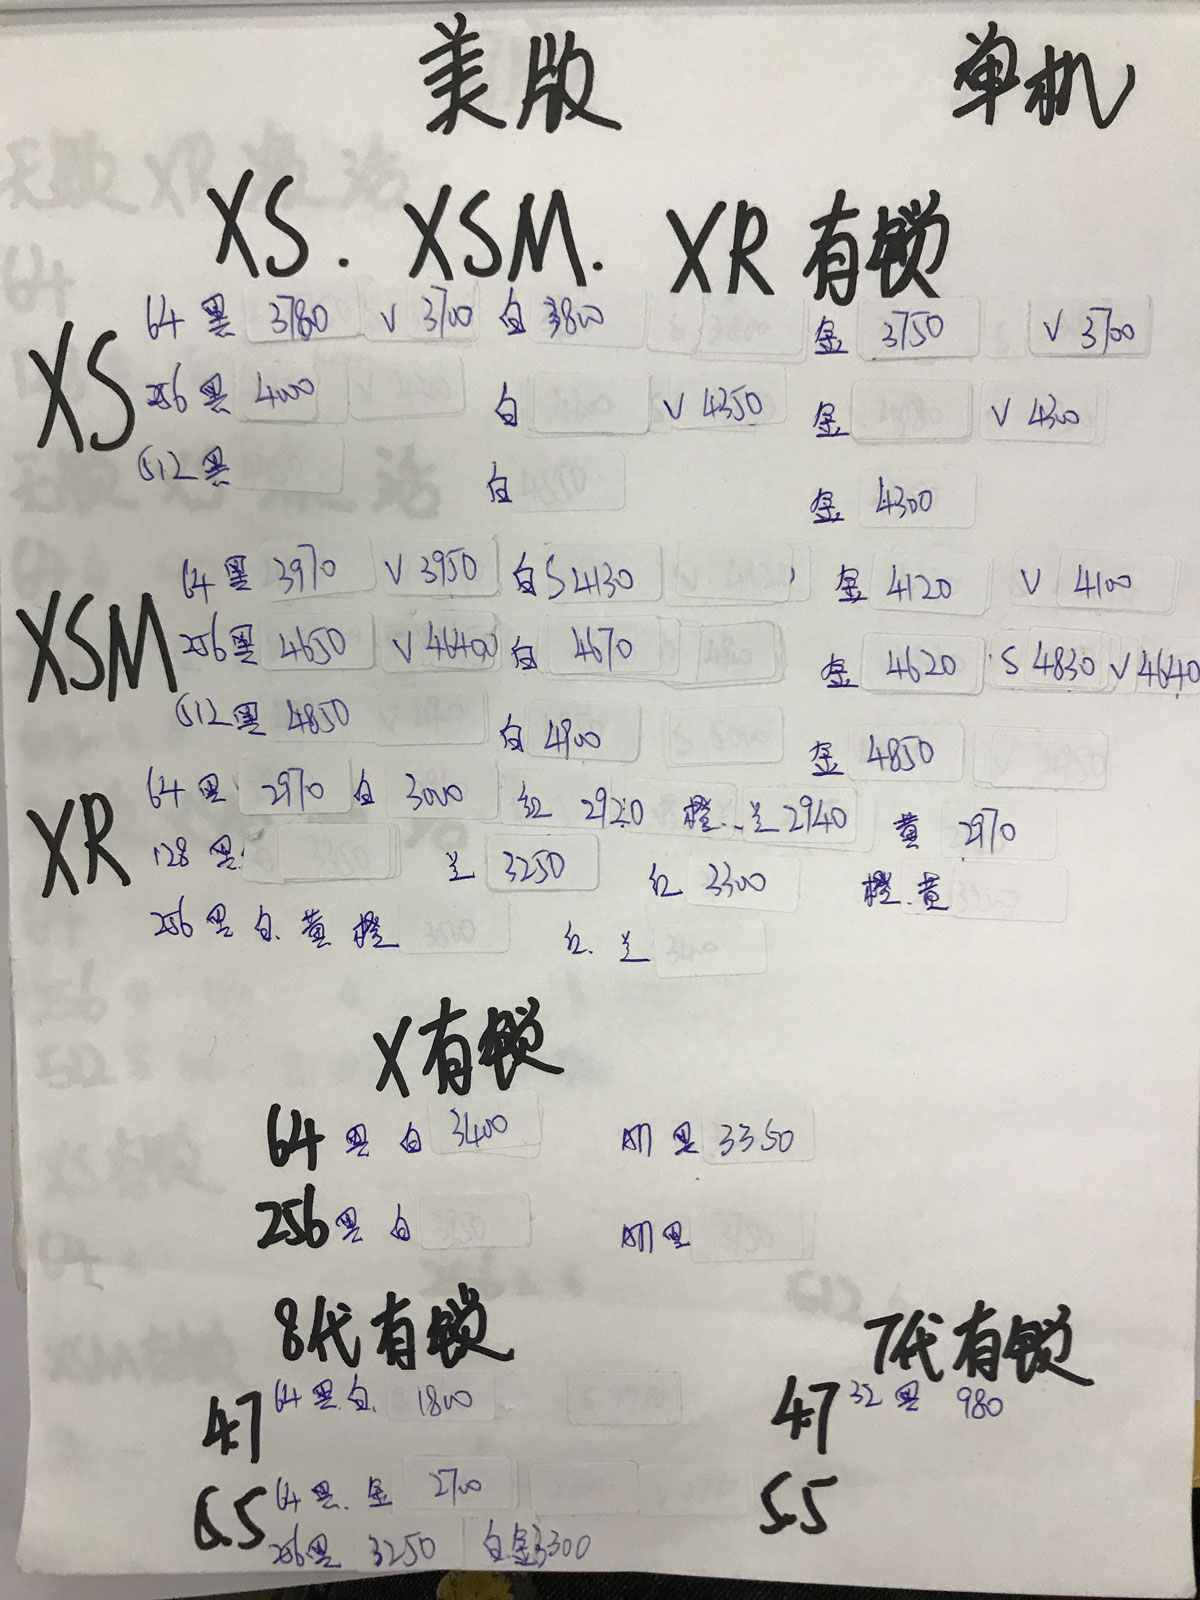 美版 单机
XS. XSM. XR 有锁
XS
64 黑 3780 V 3700 白 3800 金 3750 V 3700
256 黑 4000 白 V 4350 金 V 4300
512 黑 白 金 4300
XSM
64 黑 3970 V 3950 白 S 4130 金 4120 V 4100
256 黑 4650 V 4640 白 4670 金 4620 S 4830 V 4640
512 黑 4850 白 4900 金 4850
XR
64 黑 2970 白 3000 红 2920 橙.兰 2940 黄 2970
128 黑 兰 3250 红 3300 橙.黄
256 黑 白.黄 橙 红.兰
X有锁
64 黑 白 3400 明 黑 3350
256 黑 白 明 黑
8代有锁 7代有锁
4.7 64 黑.白. 1800 4.7 32 黑 980
5.5 64 黑.金 2700 5.5
256.黑 3250 白.金 3300